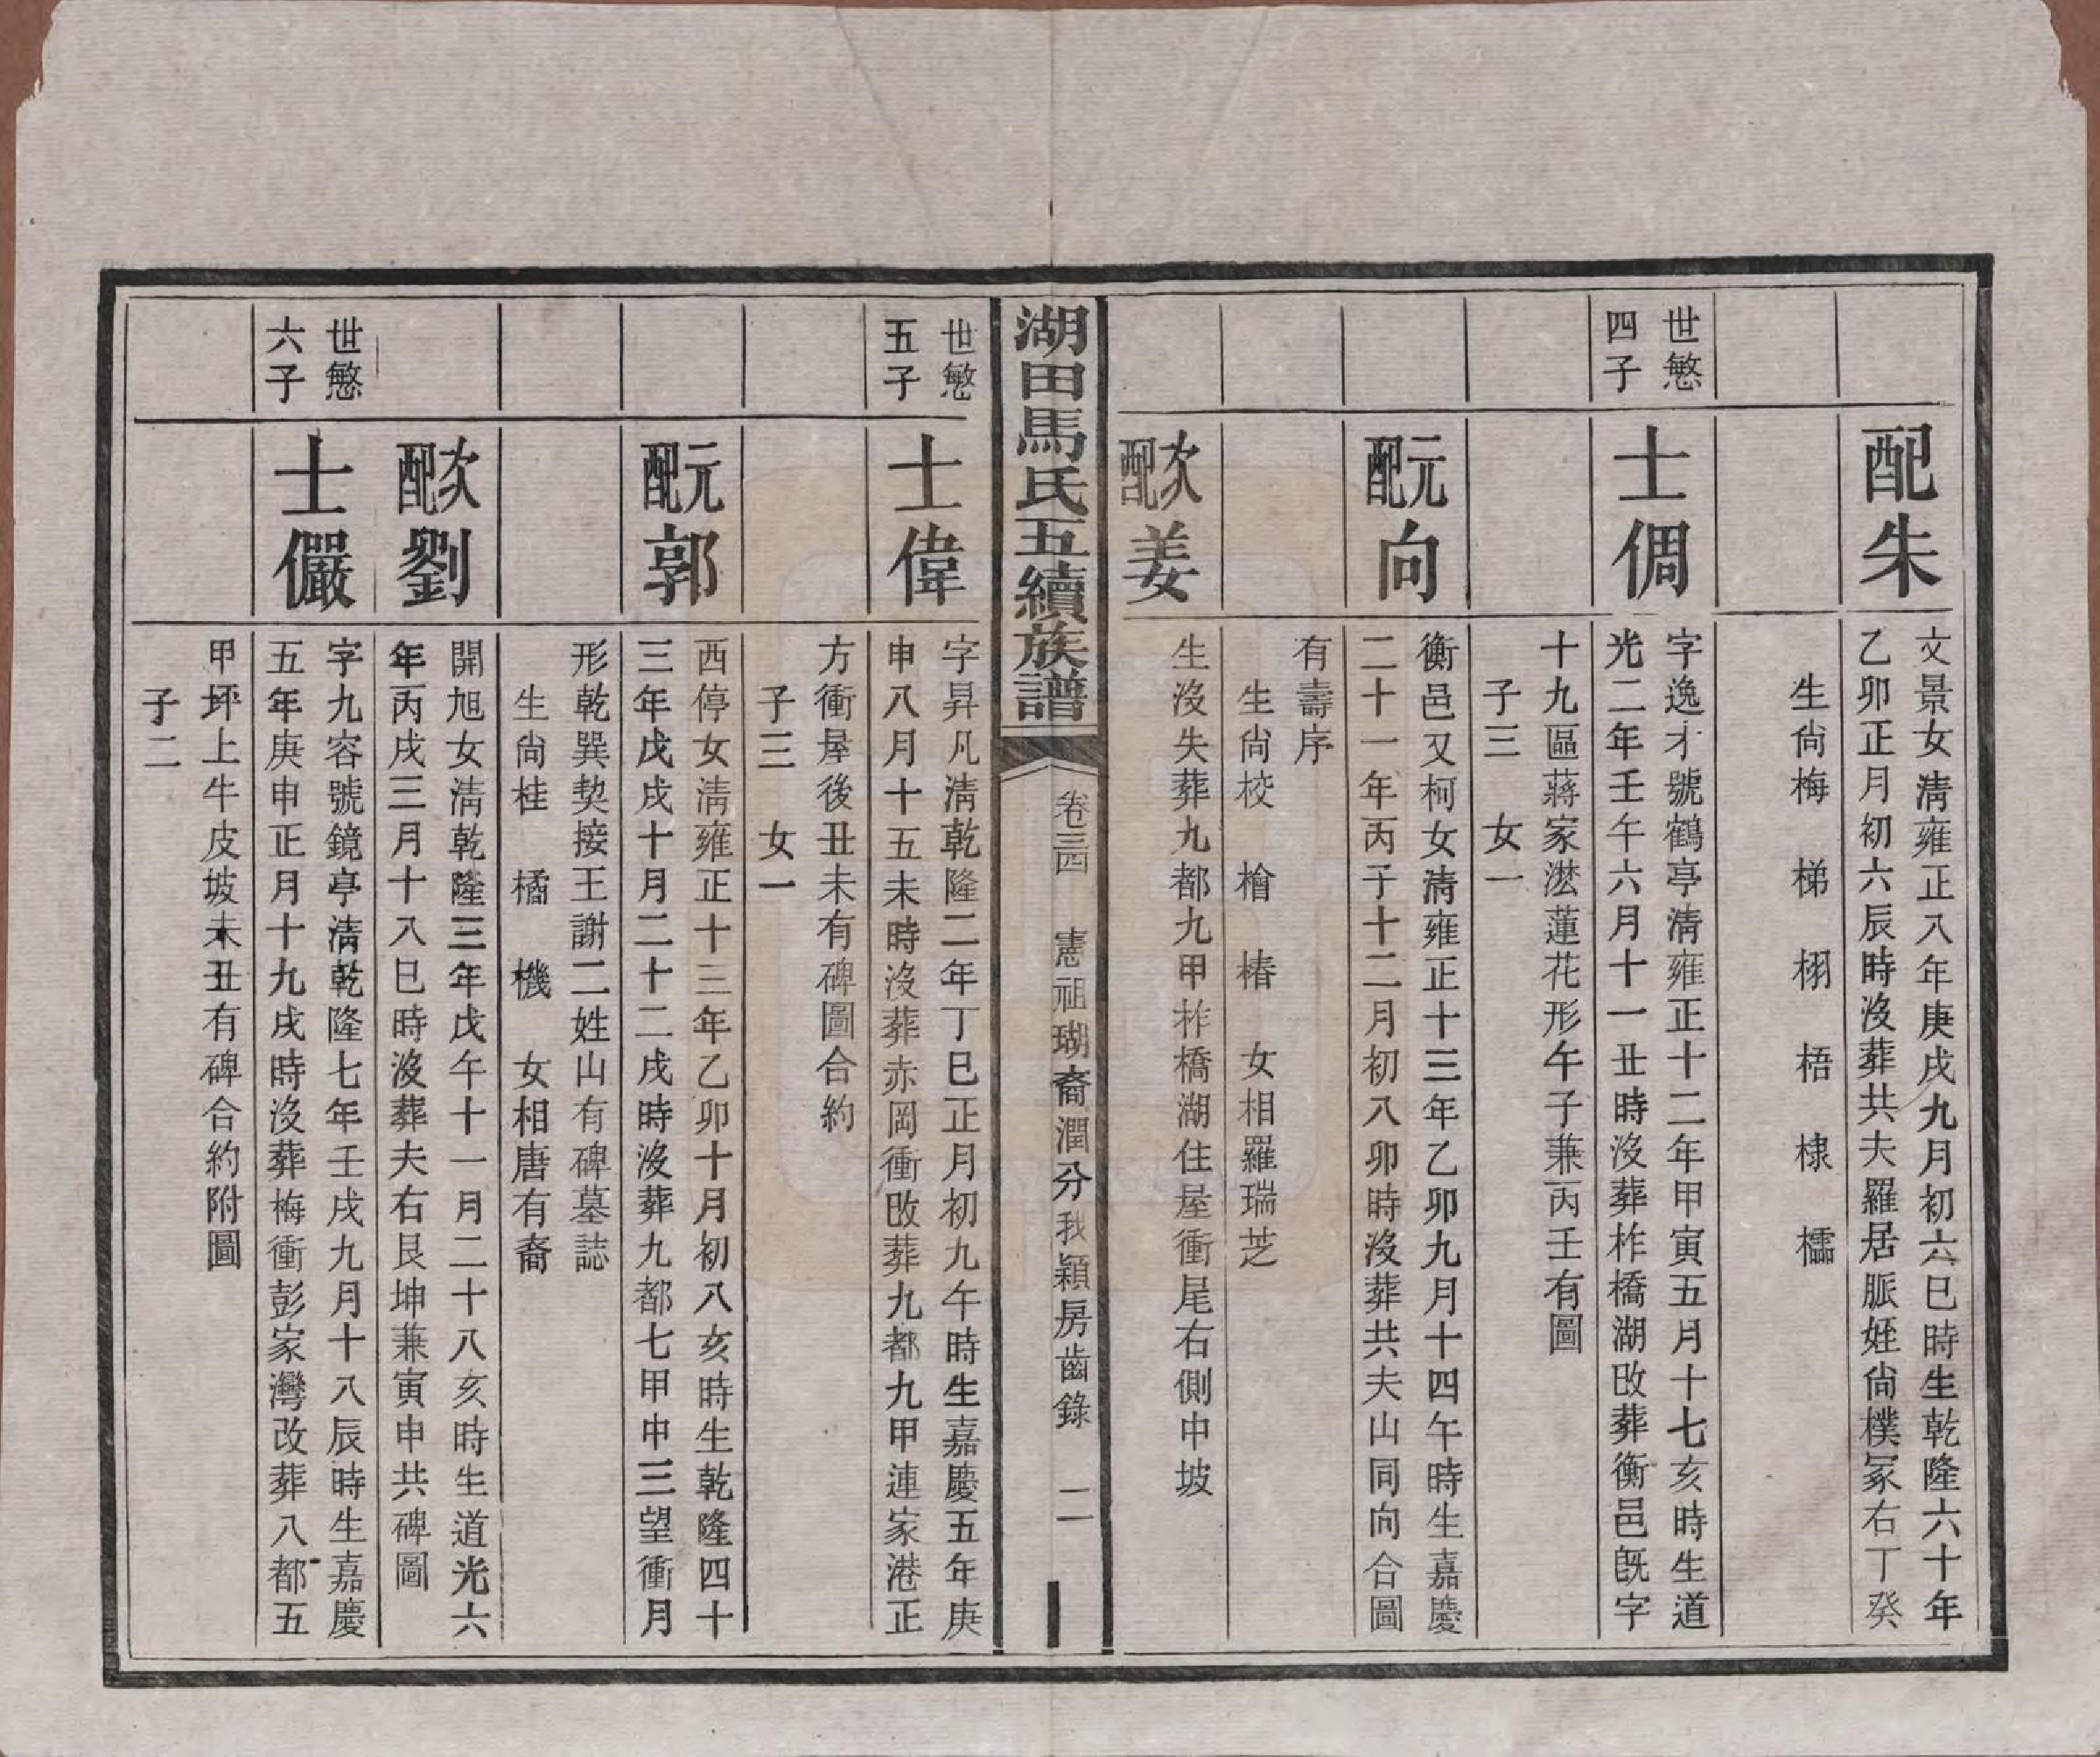 配朱
文景女清雍正八年庚戌九月初六巳時生乾隆六十年
乙卯正月初六辰時沒葬共夫羅居脈姪尙樸冢右丁癸
生尙梅　梯　栩　梧　棣　檽
世慜
四子
士倜
字逸才號鶴亭清雍正十二年甲寅五月十七亥時生道
光二年壬午六月十一丑時沒葬柞橋湖改葬衡邑旣字
十九區蔣家㵎蓮花形午子兼丙壬有圖
子三　女一
元配向
衡邑又柯女清雍正十三年乙卯九月十四午時生嘉慶
二十一年丙子十二月初八卯時沒葬共夫山同向合圖
有壽序
生尙校　檜　椿　女相羅瑞芝
次配姜
生沒失葬九都九甲柞橋湖住屋衝尾右側中坡
湖田馬氏五續族譜
卷三四　憲祖瑚裔潤分我穎房齒錄　二
世慜
五子
士偉
字昇凡清乾隆二年丁巳正月初九午時生嘉慶五年庚
申八月十五未時沒葬赤岡衝改葬九都九甲連家港正
方衝屋後丑未有碑圖合約
子三　女一
元配郭
西停女清雍正十三年乙卯十月初八亥時生乾隆四十
三年戊戌十月二十二戌時沒葬九都七甲中三望衝月
形乾巽契接王謝二姓山有碑墓誌
生尙桂　橘　機　女相唐有裔
次配劉
開旭女清乾隆三年戊午十一月二十八亥時生道光六
年丙戌三月十八巳時沒葬夫右艮坤兼寅申共碑圖
世慜
六子
士儼
字九容號鏡亭清乾隆七年壬戌九月十八辰時生嘉慶
五年庚申正月十九戌時沒葬梅衝彭家灣改葬八都五
甲坪上牛皮坡未丑有碑合約附圖
子二